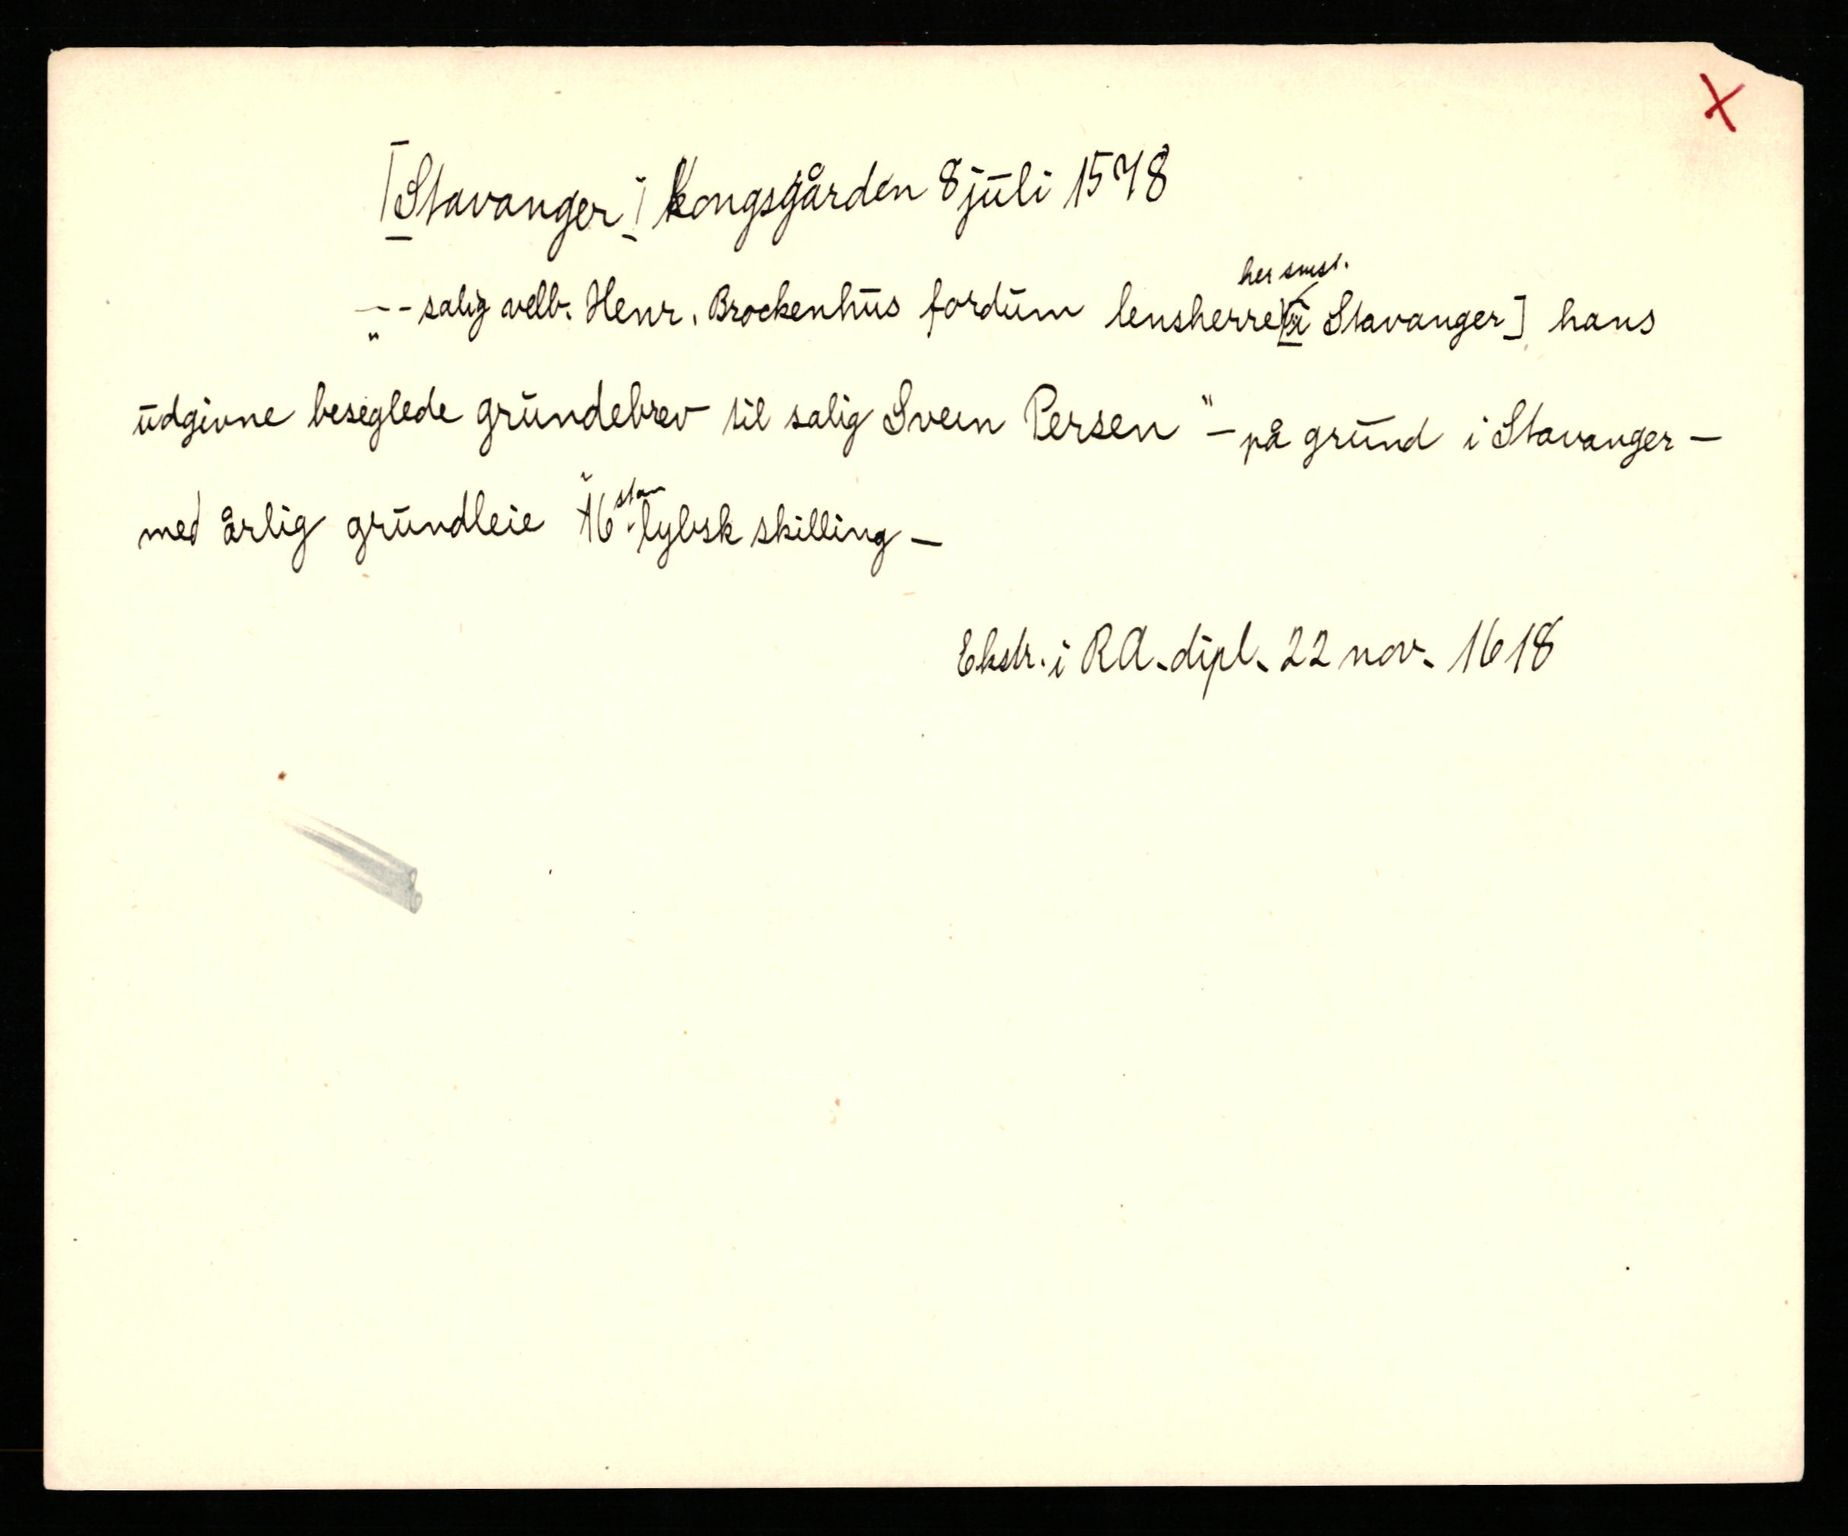 X
[Stavanger] Kongsgården 8 juli 1578
"-- salig velb. Henr. Brockenhus fordum lensherre her smst. [i Stavanger] hans
udgivne beseglede grundebrev til salig Svein Persen" - på grund i Stavanger -
med årlig grundleie "16 lybsk skilling -
Ekstr. i RA. dipl. 22 nov. 1618